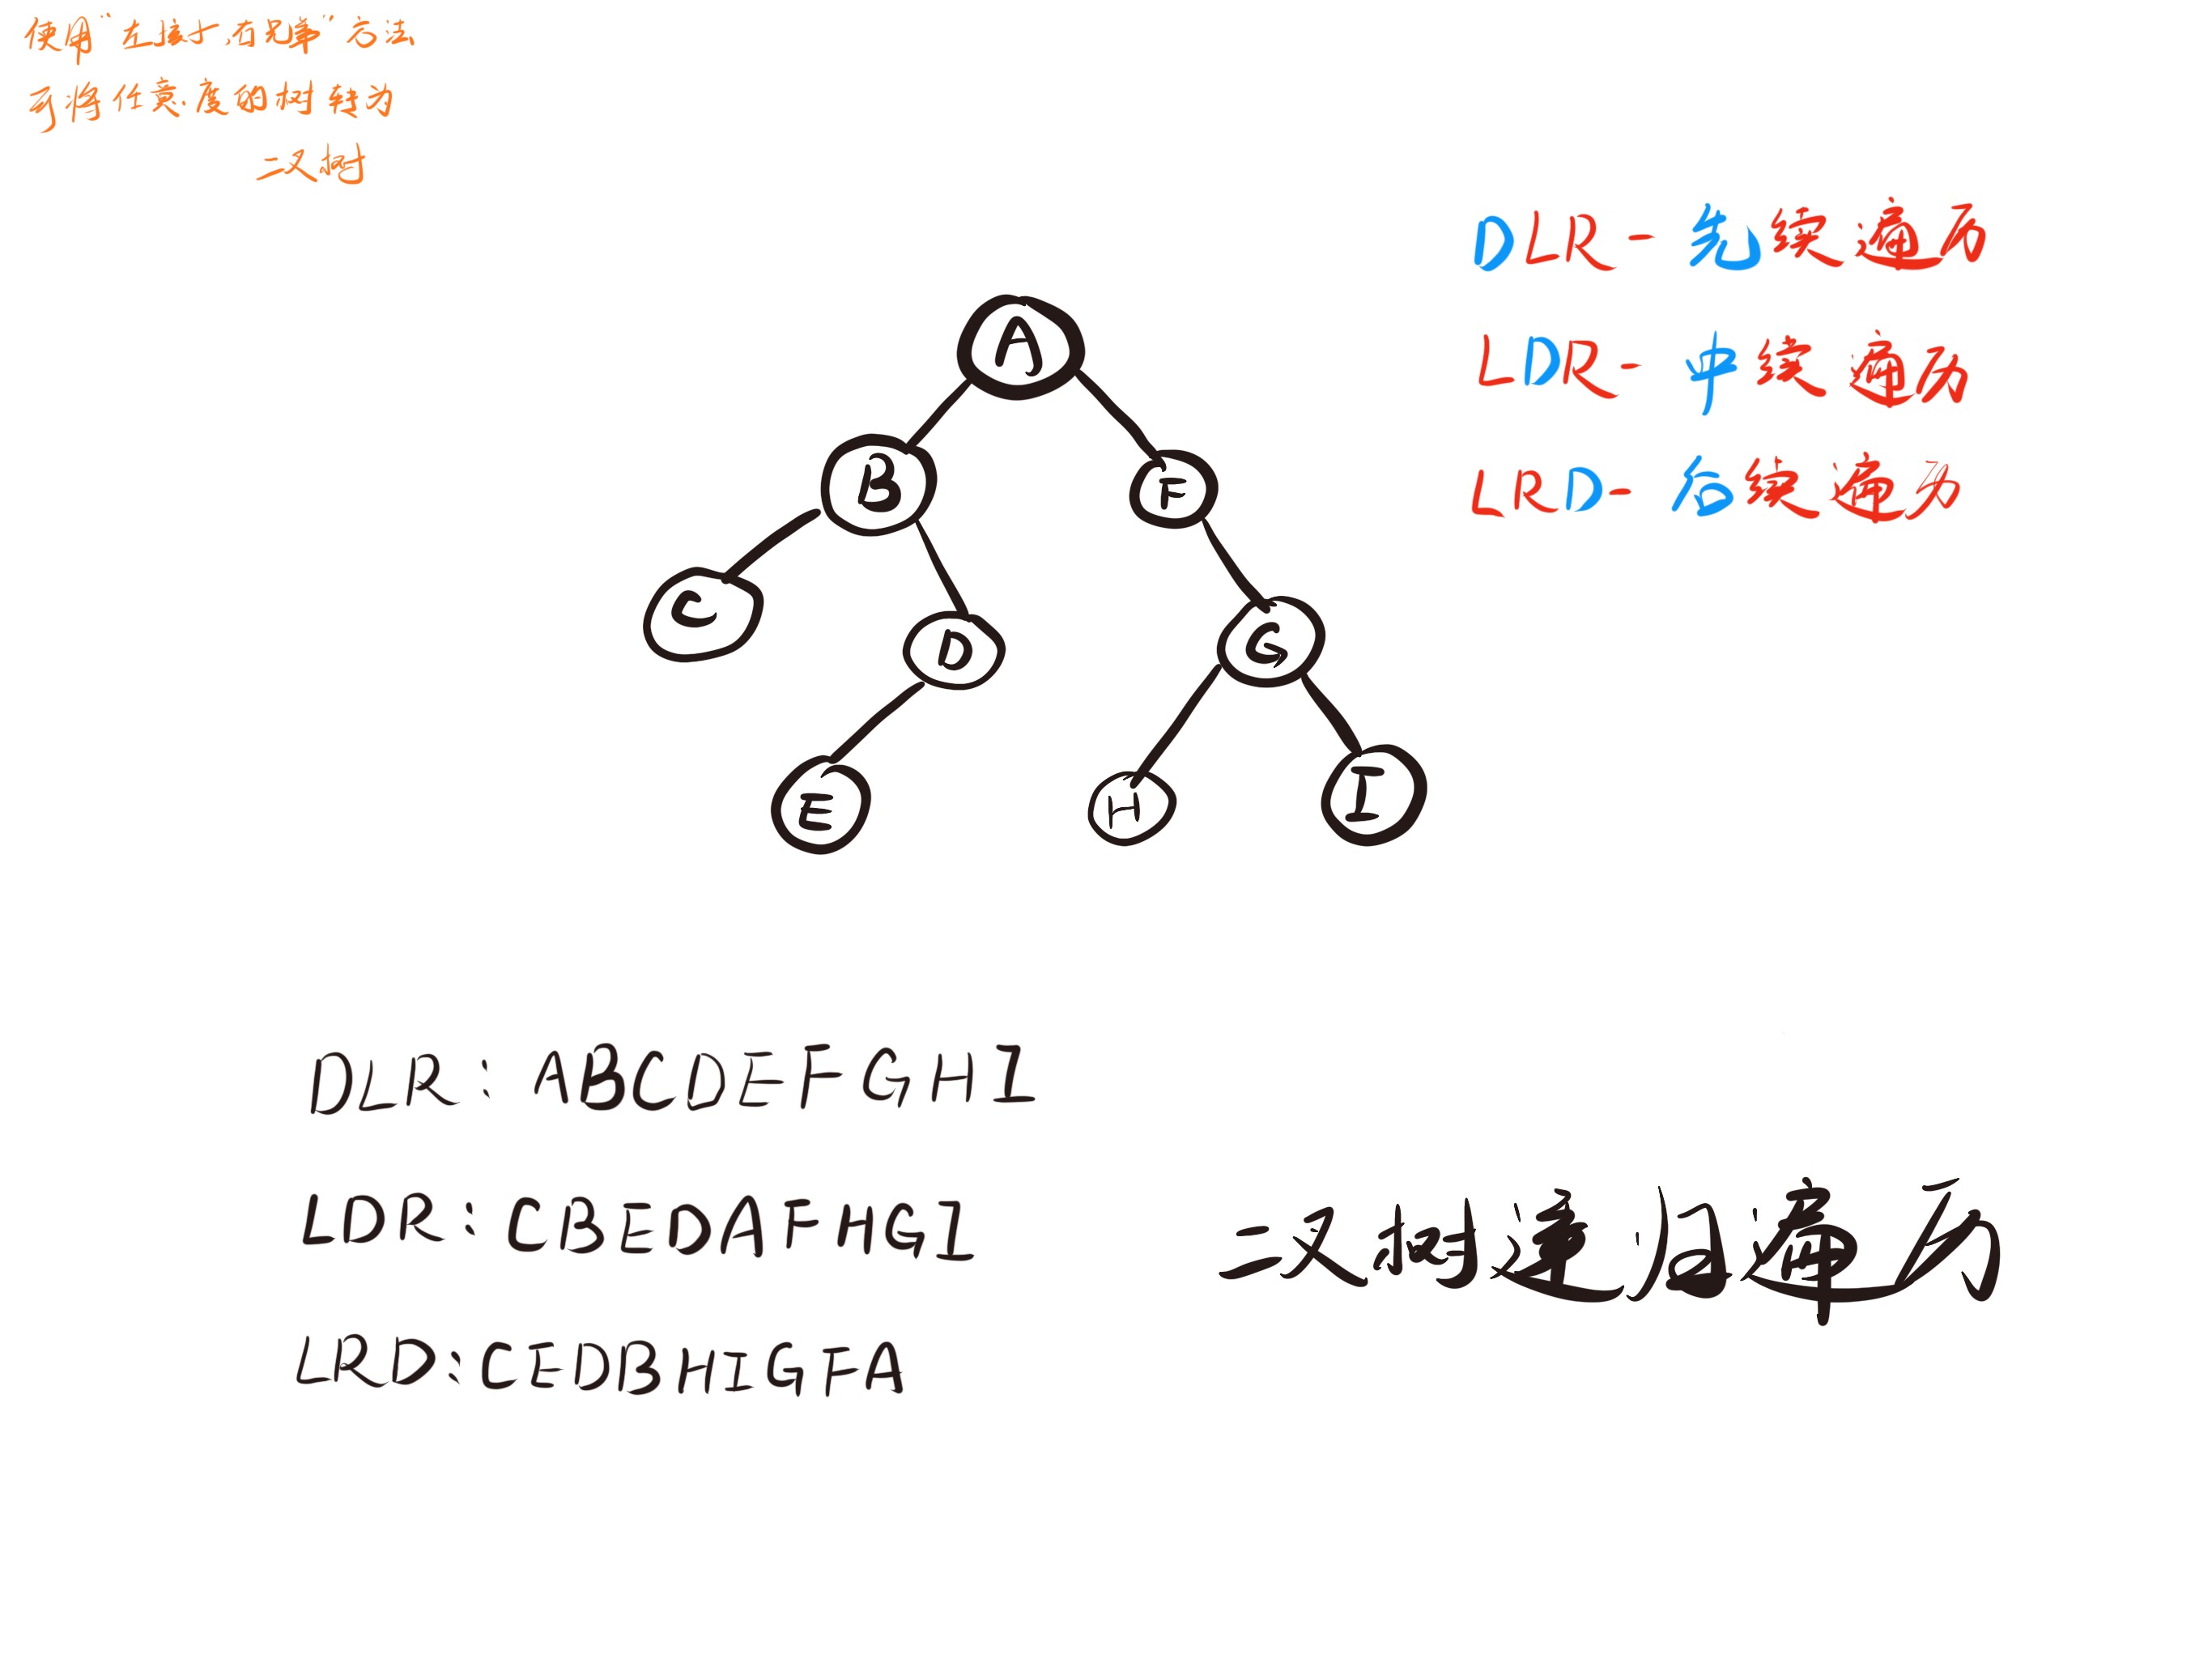 使用“左孩子,右兄弟”方法
可将任意度的树转为
二叉树
DLR-先续遍历
LDR-中续遍历
LRD-后续遍历
A
B
F
C
D
G
E
H
I
DLR: ABCDEFGHI
LDR: CBEDAFHGI
LRD: CEDBHIGFA
二叉树递归遍历